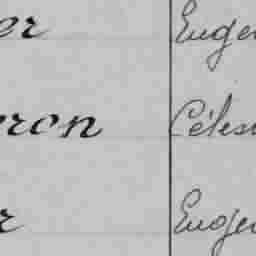 er Euge
ron Céles
r Euge